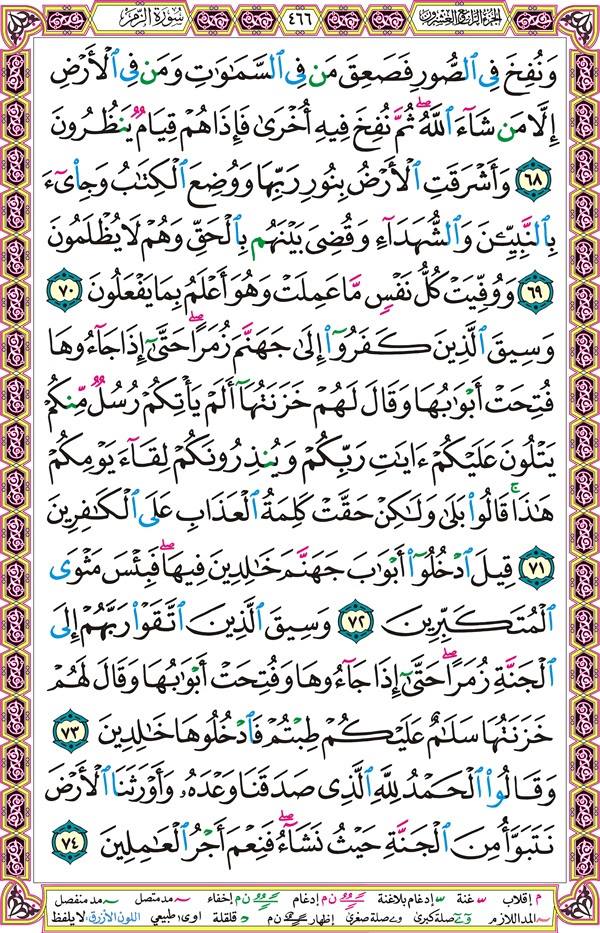 الجزء الرابع والعشرون ٤٦٦ سورة الزمر
وَنُفِخَ فِي ٱلصُّورِ فَصَعِقَ مَن فِي ٱلسَّمَٰوَٰتِ وَمَن فِي ٱلْأَرْضِ
إِلَّا مَن شَآءَ ٱللَّهُ ۖ ثُمَّ نُفِخَ فِيهِ أُخْرَىٰ فَإِذَا هُمْ قِيَامٌ يَنظُرُونَ
٦٨ وَأَشْرَقَتِ ٱلْأَرْضُ بِنُورِ رَبِّهَا وَوُضِعَ ٱلْكِتَٰبُ وَجِا۟ىٓءَ
بِٱلنَّبِيِّـۧنَ وَٱلشُّهَدَآءِ وَقُضِىَ بَيْنَهُم بِٱلْحَقِّ وَهُمْ لَا يُظْلَمُونَ
٦٩ وَوُفِّيَتْ كُلُّ نَفْسٍ مَّا عَمِلَتْ وَهُوَ أَعْلَمُ بِمَا يَفْعَلُونَ ٧٠
وَسِيقَ ٱلَّذِينَ كَفَرُوٓا۟ إِلَىٰ جَهَنَّمَ زُمَرًا ۖ حَتَّىٰٓ إِذَا جَآءُوهَا
فُتِحَتْ أَبْوَٰبُهَا وَقَالَ لَهُمْ خَزَنَتُهَآ أَلَمْ يَأْتِكُمْ رُسُلٌ مِّنكُمْ
يَتْلُونَ عَلَيْكُمْ ءَايَٰتِ رَبِّكُمْ وَيُنذِرُونَكُمْ لِقَآءَ يَوْمِكُمْ
هَٰذَا ۚ قَالُوا۟ بَلَىٰ وَلَٰكِنْ حَقَّتْ كَلِمَةُ ٱلْعَذَابِ عَلَى ٱلْكَٰفِرِينَ
٧١ قِيلَ ٱدْخُلُوٓا۟ أَبْوَٰبَ جَهَنَّمَ خَٰلِدِينَ فِيهَا ۖ فَبِئْسَ مَثْوَى
ٱلْمُتَكَبِّرِينَ ٧٢ وَسِيقَ ٱلَّذِينَ ٱتَّقَوْا۟ رَبَّهُمْ إِلَى
ٱلْجَنَّةِ زُمَرًا ۖ حَتَّىٰٓ إِذَا جَآءُوهَا وَفُتِحَتْ أَبْوَٰبُهَا وَقَالَ لَهُمْ
خَزَنَتُهَا سَلَٰمٌ عَلَيْكُمْ طِبْتُمْ فَٱدْخُلُوهَا خَٰلِدِينَ ٧٣
وَقَالُوا۟ ٱلْحَمْدُ لِلَّهِ ٱلَّذِى صَدَقَنَا وَعْدَهُۥ وَأَوْرَثَنَا ٱلْأَرْضَ
نَتَبَوَّأُ مِنَ ٱلْجَنَّةِ حَيْثُ نَشَآءُ ۖ فَنِعْمَ أَجْرُ ٱلْعَٰمِلِينَ ٧٤
م إقلاب غنة إدغام بلاغنة ن م إدغام ن م إخفاء مد متصل مد منفصل
المد اللازم صلة كبرى صلة صغرى إظهار ن م قلقلة اوى طبيعي اللون الأزرق لا يلفظ